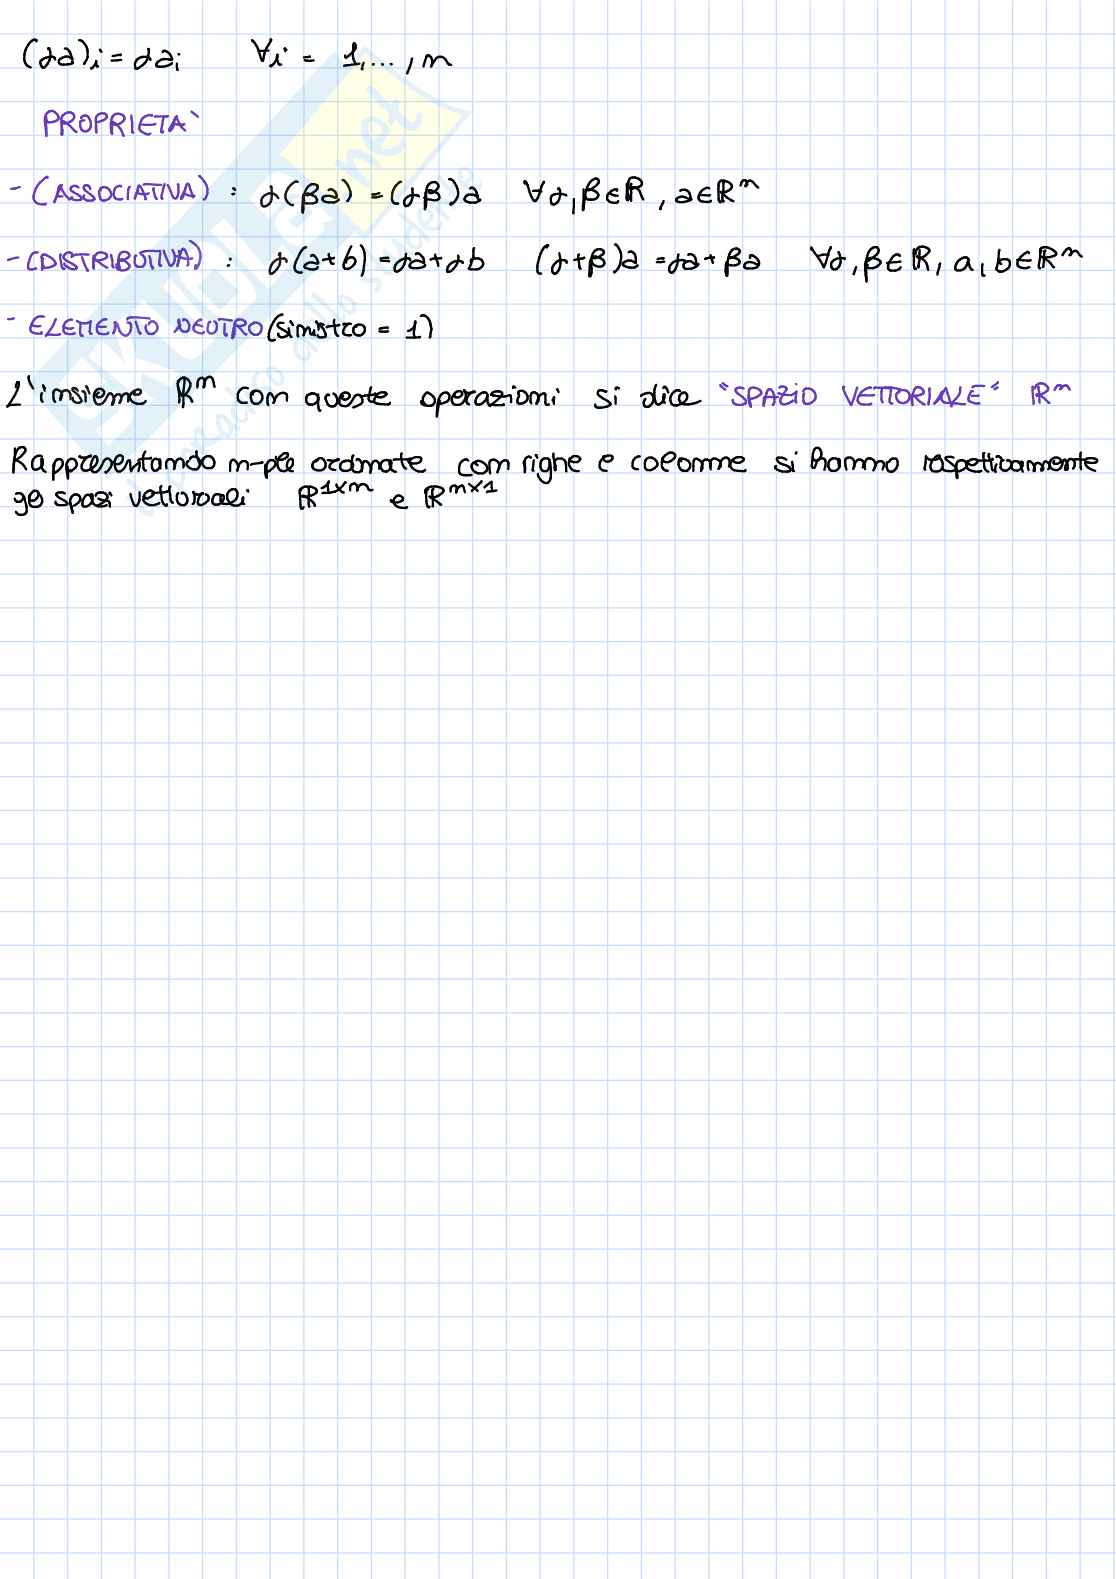 (αa)ᵢ = αaᵢ ∀i = 1,...,n
PROPRIETA`
- (ASSOCIATIVA) : α(βa) = (αβ)a ∀α,β∈ℝ, a∈ℝⁿ
- (DISTRIBUTIVA) : α(a+b) = αa+αb (α+β)a = αa+βa ∀α,β∈ℝ, a,b∈ℝⁿ
- ELEMENTO NEUTRO (sinistro = 1)
L'insieme ℝⁿ con queste operazioni si dice "SPAZIO VETTORIALE" ℝⁿ
Rappresentando n-ple ordinate con righe e colonne si hanno rispettivamente
gli spazi vettoriali ℝ¹ˣⁿ e ℝⁿˣ¹
SKUOLA.net